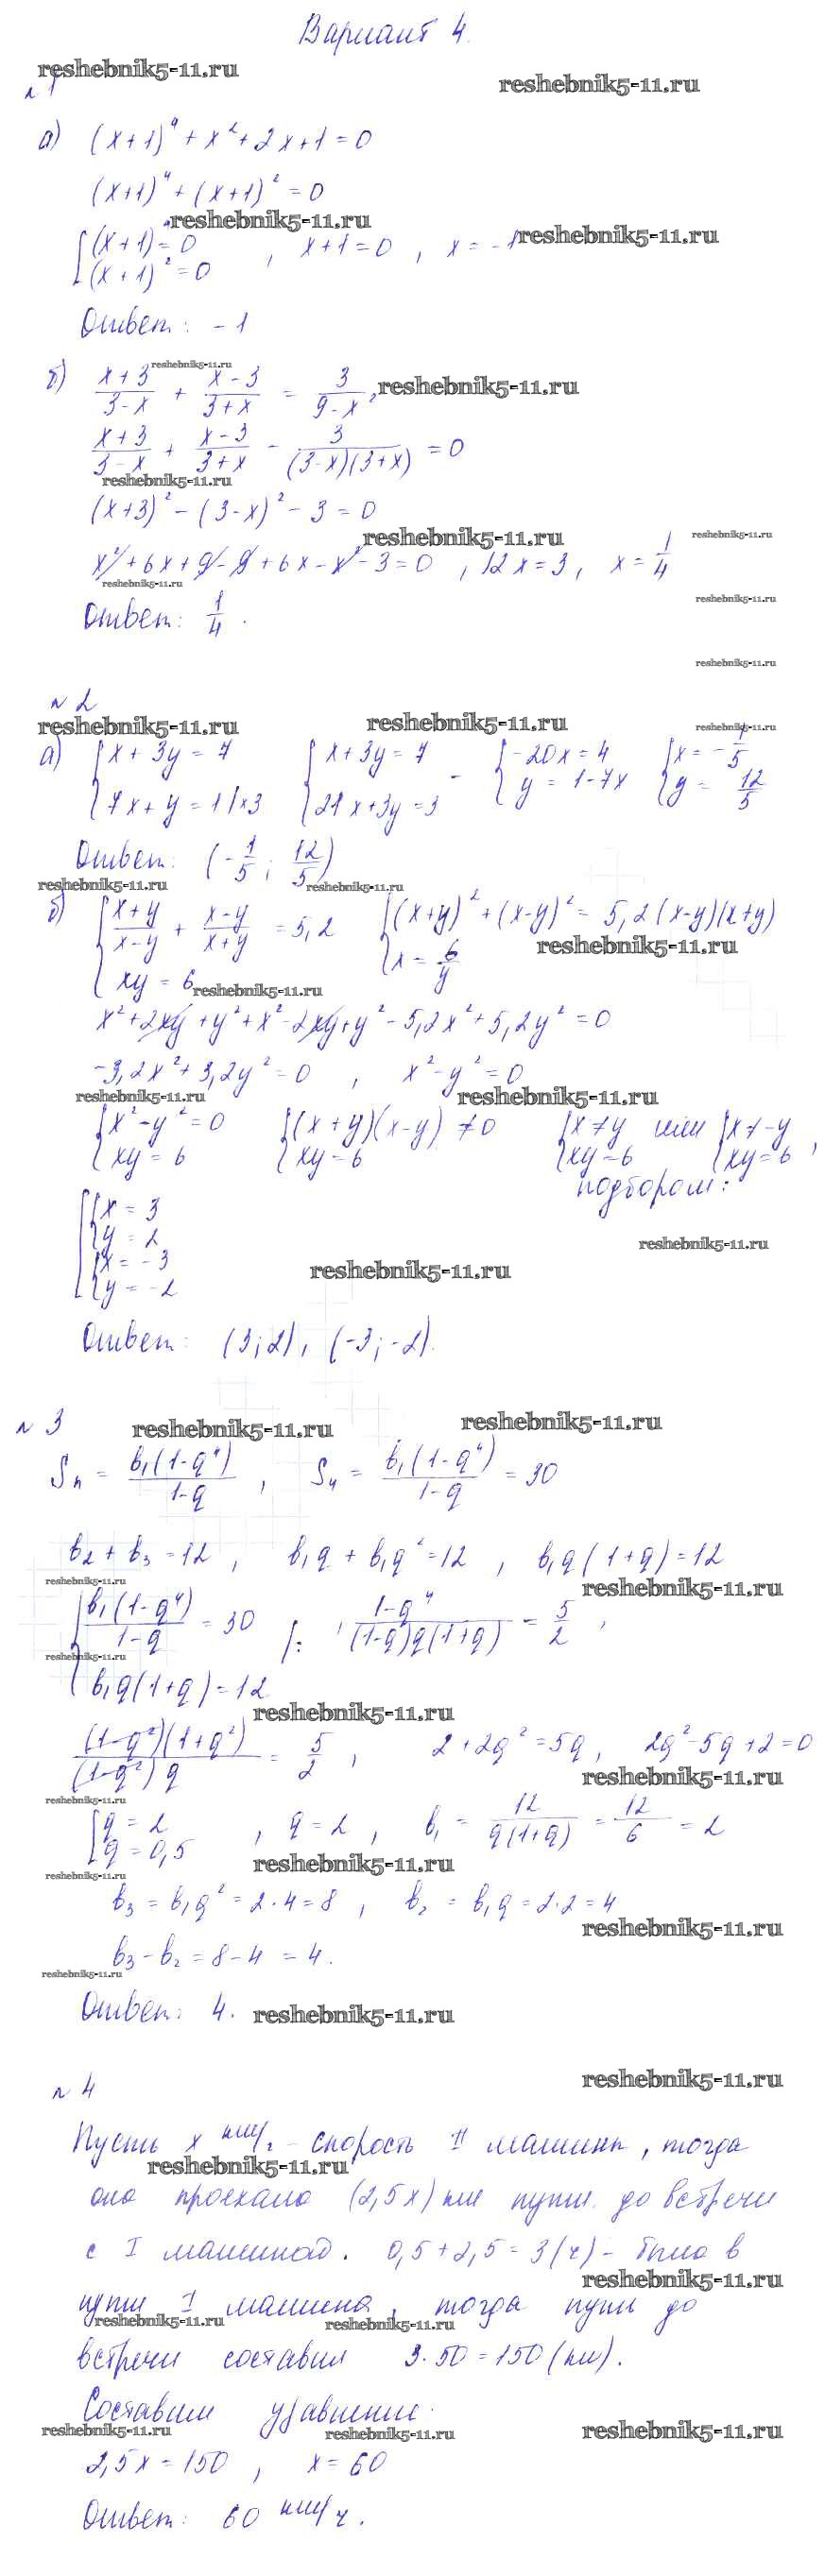 Вариант 4.
reshebnik5-11.ru
reshebnik5-11.ru
№ 1
а) (x+1)⁴ + x² + 2x + 1 = 0
(x+1)⁴ + (x+1)² = 0
reshebnik5-11.ru
[(x+1) = 0
(x+1)² = 0 , x+1 = 0 , x = -1
reshebnik5-11.ru
Ответ: -1
б) (x+3)/(3-x) + (x-3)/(3+x) = 3/(9-x²
reshebnik5-11.ru
reshebnik5-11.ru
(x+3)/(3-x) + (x-3)/(3+x) - 3/((3-x)(3+x)) = 0
reshebnik5-11.ru
(x+3)² - (3-x)² - 3 = 0
reshebnik5-11.ru
reshebnik5-11.ru
x² + 6x + 9 - 9 + 6x - x² - 3 = 0 , 12x = 3 , x = 1/4
reshebnik5-11.ru
reshebnik5-11.ru
Ответ: 1/4 .
reshebnik5-11.ru
№ 2
reshebnik5-11.ru
reshebnik5-11.ru
reshebnik5-11.ru
а) {x + 3y = 7 {x + 3y = 7 - {-20x = 4 {x = -1/5
7x + y = 1 | ×3 21x + 3y = 3 y = 1 - 7x y = 12/5
Ответ: (-1/5 ; 12/5)
reshebnik5-11.ru
reshebnik5-11.ru
б) {(x+y)/(x-y) + (x-y)/(x+y) = 5,2 {(x+y)² + (x-y)² = 5,2(x-y)(x+y)
xy = 6 x = 6/y
reshebnik5-11.ru
reshebnik5-11.ru
x² + 2xy + y² + x² - 2xy + y² - 5,2x² + 5,2y² = 0
-3,2x² + 3,2y² = 0 , x² - y² = 0
reshebnik5-11.ru
reshebnik5-11.ru
{x² - y² = 0 {(x+y)(x-y) ≠ 0 {x ≠ y или {x ≠ -y
xy = 6 xy = 6 xy = 6 xy = 6 ,
подбором:
[{x = 3
y = 2
{x = -3
y = -2
reshebnik5-11.ru
reshebnik5-11.ru
Ответ: (3;2), (-3;-2).
№ 3
reshebnik5-11.ru
reshebnik5-11.ru
Sₙ = b₁(1-q⁴)/(1-q) , S₄ = b₁(1-q⁴)/(1-q) = 30
b₂ + b₃ = 12 , b₁q + b₁q² = 12 , b₁q(1+q) = 12
reshebnik5-11.ru
reshebnik5-11.ru
{b₁(1-q⁴)/(1-q) = 30 |: , (1-q⁴)/((1-q)q(1+q)) = 5/2 ,
reshebnik5-11.ru
b₁q(1+q) = 12
reshebnik5-11.ru
(1-q²)(1+q²)/((1-q²)q) = 5/2 , 2 + 2q² = 5q , 2q² - 5q + 2 = 0
reshebnik5-11.ru
reshebnik5-11.ru
[q = 2
q = 0,5 , q = 2 , b₁ = 12/(q(1+q)) = 12/6 = 2
reshebnik5-11.ru
reshebnik5-11.ru
b₃ = b₁q² = 2·4 = 8 , b₂ = b₁q = 2·2 = 4
reshebnik5-11.ru
b₃ - b₂ = 8 - 4 = 4.
reshebnik5-11.ru
Ответ: 4.
reshebnik5-11.ru
№ 4
reshebnik5-11.ru
Пусть x км/ч - скорость II машины, тогда
reshebnik5-11.ru
она проехала (2,5x) км пути до встречи
с I машиной. 0,5 + 2,5 = 3 (ч) - была в
reshebnik5-11.ru
пути I машина, тогда путь до
reshebnik5-11.ru
reshebnik5-11.ru
встречи составил 3·50 = 150 (км).
Составим уравнение:
reshebnik5-11.ru
reshebnik5-11.ru
reshebnik5-11.ru
2,5x = 150 , x = 60
Ответ: 60 км/ч.